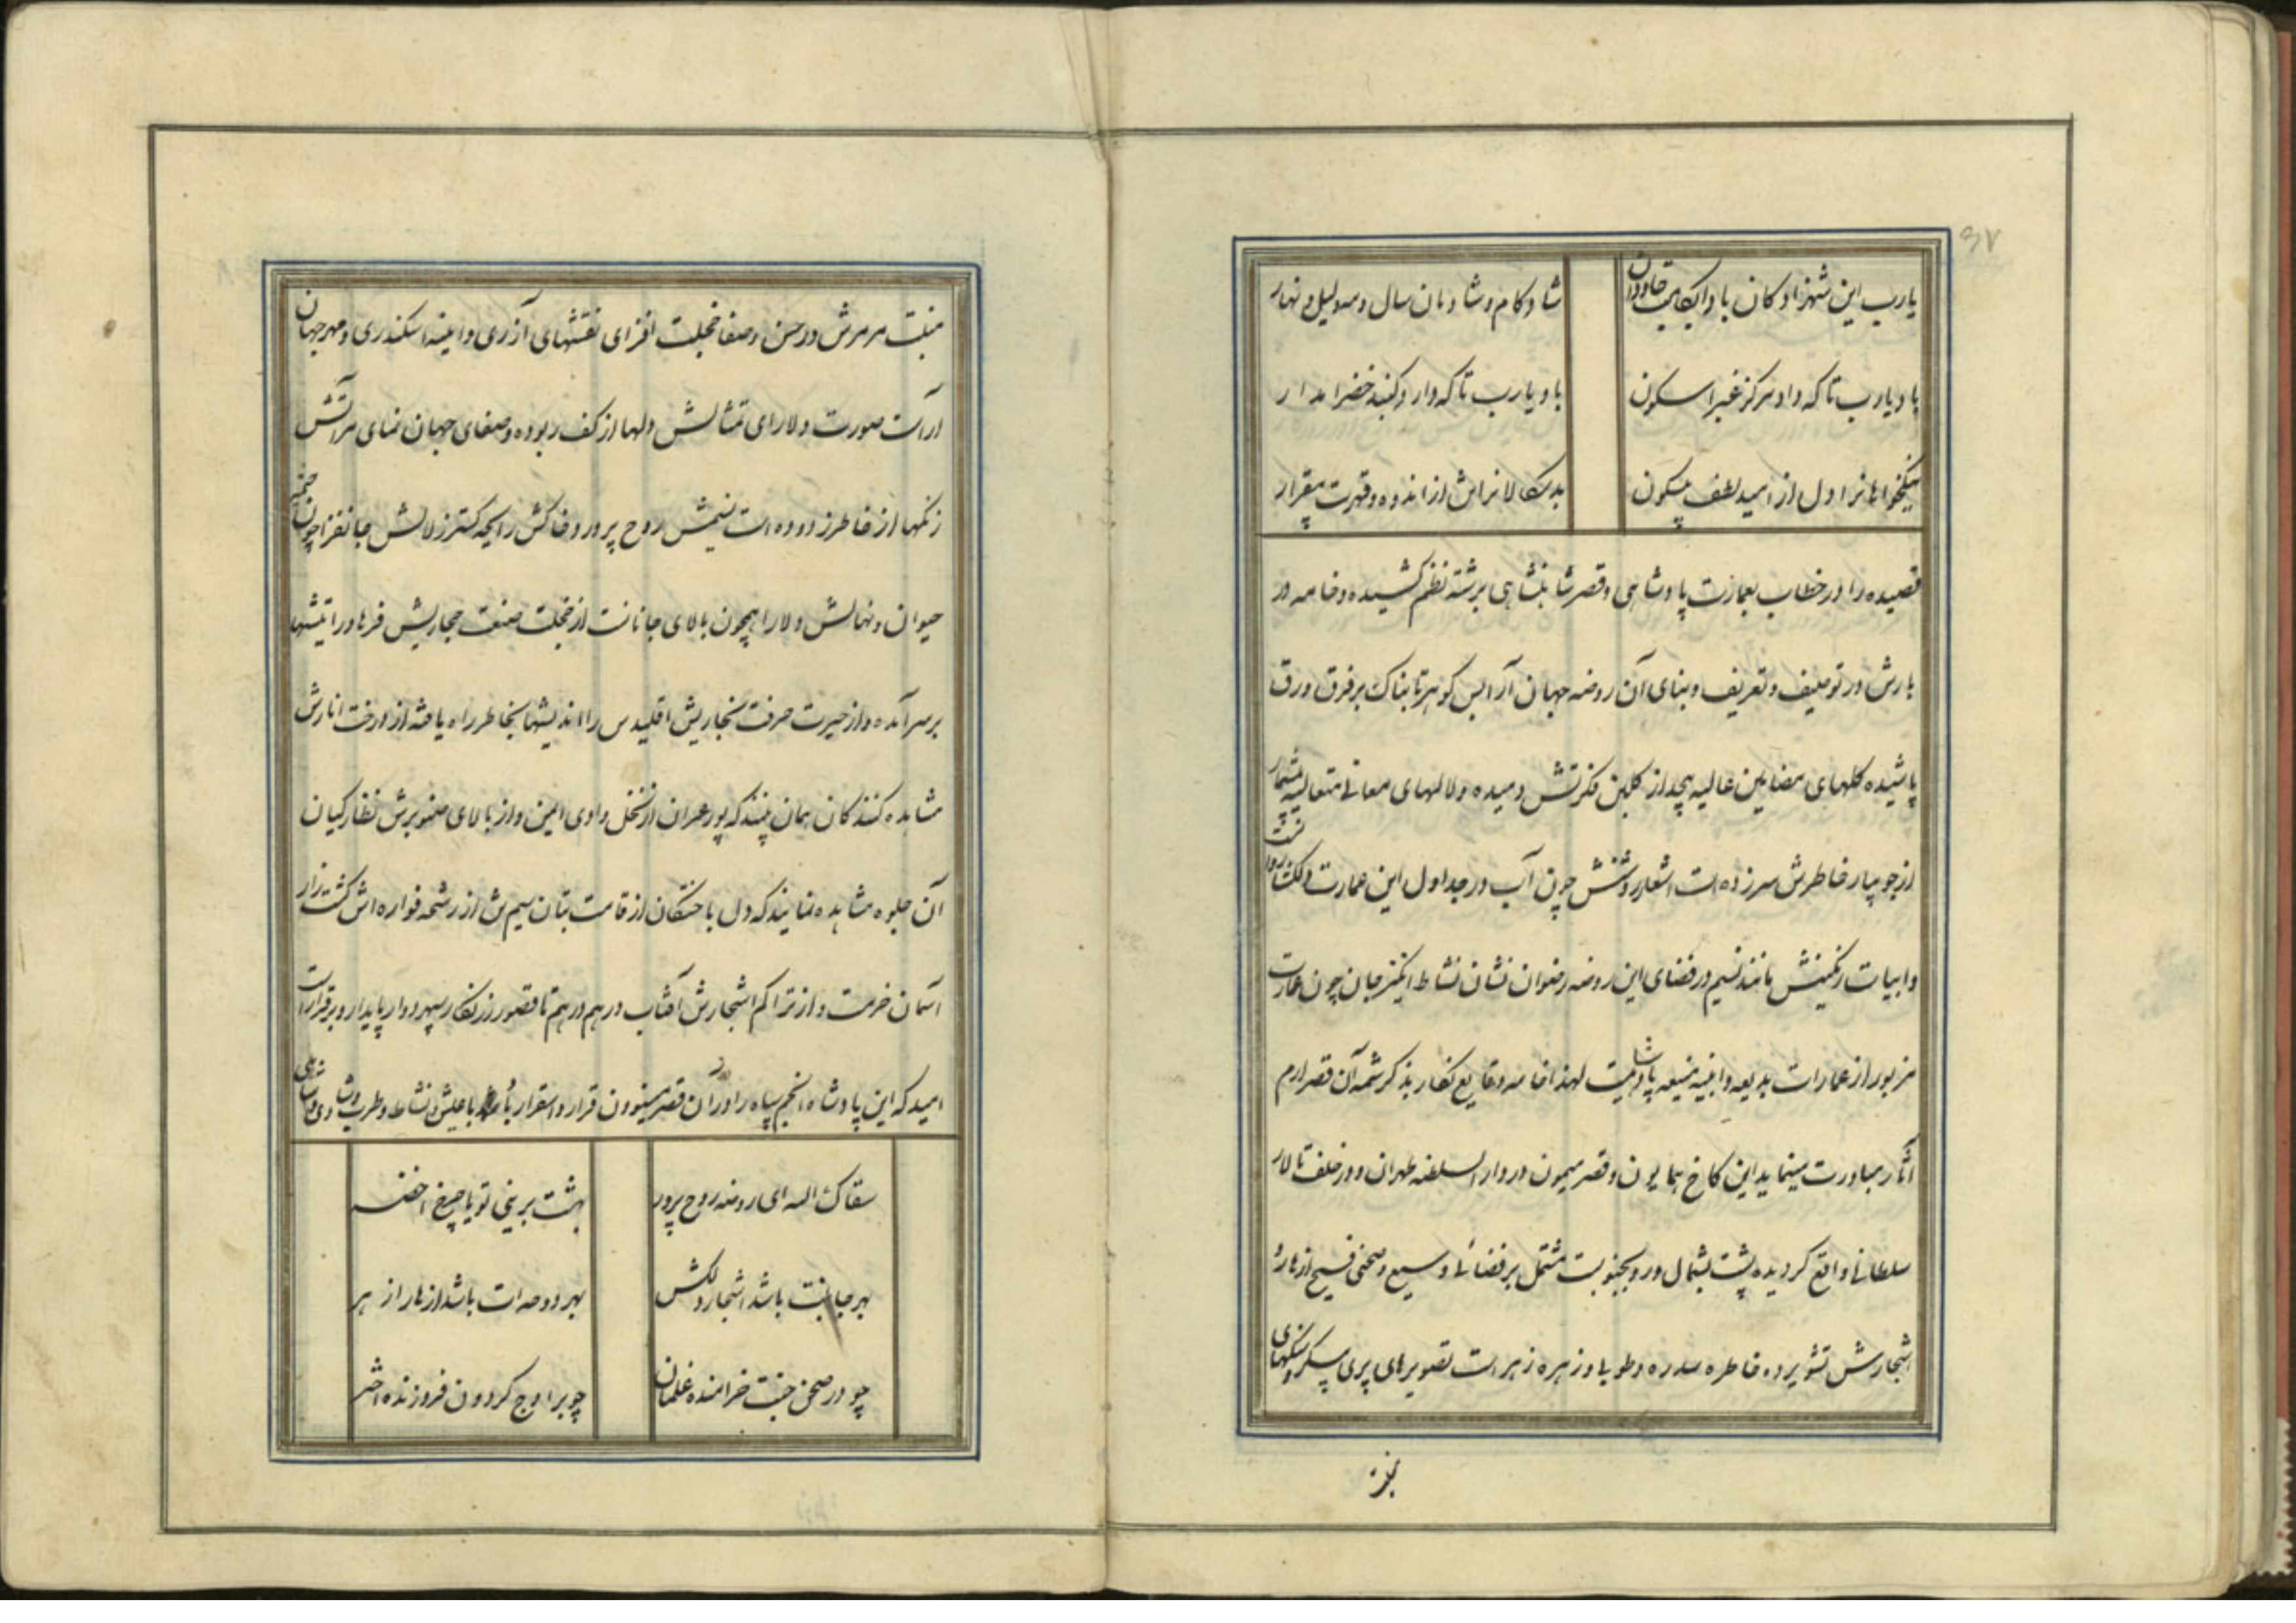 ۳۷
یارب این شهزادکان با دایکایت جاودان
شاد کام و شادمان سال و مه لیل و نهار
باد یارب تا که دارد مرکز غبرا سکون
باد یارب تا که دارد کنبد خضرا مدار
نیکخواهانرا دل از امید لطف پرسکون
بدسکالانرا تن از اندوه و قهرت بیقرار
قصیده را در خطاب بعمارت پادشاهی و قصر شاهنشاهی برشته نظم کشیده و خامه در
بارش در توصیف و تعریف و بنای آن روضه جهان آرا بس کوهر تابناک بر فرق ورق
پاشیده کلهای مضامین عالیه بیحد از کلبن فکرتش دمیده و لالهای معانی متعالیه بیشمار
از جویبار خاطرش سرزده است اشعار روشنش چون آب در جداول این عمارت دلکشا روانست
و ابیات رنکینش مانند نسیم در فضای این روضه رضوان نشان نشاط انکیز جان چون عمارت
مزبور از عمارات بدیعه و ابنیه منیعه پادشاهیت لهذا خامه وقایع نکار بذکر شمه آن قصر ارم
آثار مبادرت مینماید این کاخ همایون و قصر میمون در دار السلطنه طهران و در خلف تالار
سلطانی واقع کردیده پشت بشمال و رو بجنوبست مشتمل بر فضائی وسیع و صحنی فسیح ازهار و
اشجارش تشویرده خاطره سدره و طوبا و زهره زهر است تصویرهای پری پیکر و سنکهای
منبت
منبت مرمرش در حسن و صفا خجلت افزای نقشهای آزری و اینه اسکندری و مهر جهان
اراست صورت دلارای تمثالش دلها از کف ربوده و صفای جهان نمای مرآتش
زنکها از خاطر زدوده است نسیمش روح پرور و خاکش رایحه کستر زلالش جانفزا چون چشمه
حیوان و نهالش دلارا همچون بالای جانانست از خجلت صنعت حجاریش فرهاد را تیشها
بر سر آمده و از حیرت حرفت نجاریش اقلیدس را اندیشها بخاطر راه یافته از درخت انارش
مشاهده کنندکان همان بینند که پور عمران از نخل وادی ایمن و از بالای صنوبرش نظارکیان
آن جلوه مشاهده نمایند که دل باختکان از قامت بتان سیم تن از رشحه فواره اش کشت زار
آسمان خرمست و از تراکم اشجارش آفتاب درهم درهم تا قصور زرنکار سپهر دوار پایدار و برقرارست
امید که این پادشاه انجم سپاه را در آن قصر مینوون قرار و استقرار باد با عیش و نشاط و طرب و شادی
سقاک الله ای روضه روح پرور
بهشت برینی تو یا چرخ اخضر
بهر جانبت باشد اشجار دلکش
بهر دوحه ات باشد ازهار از هر
چو در صحن جنت خرامنده غلمان
چو بر اوج کردون فروزنده اختر